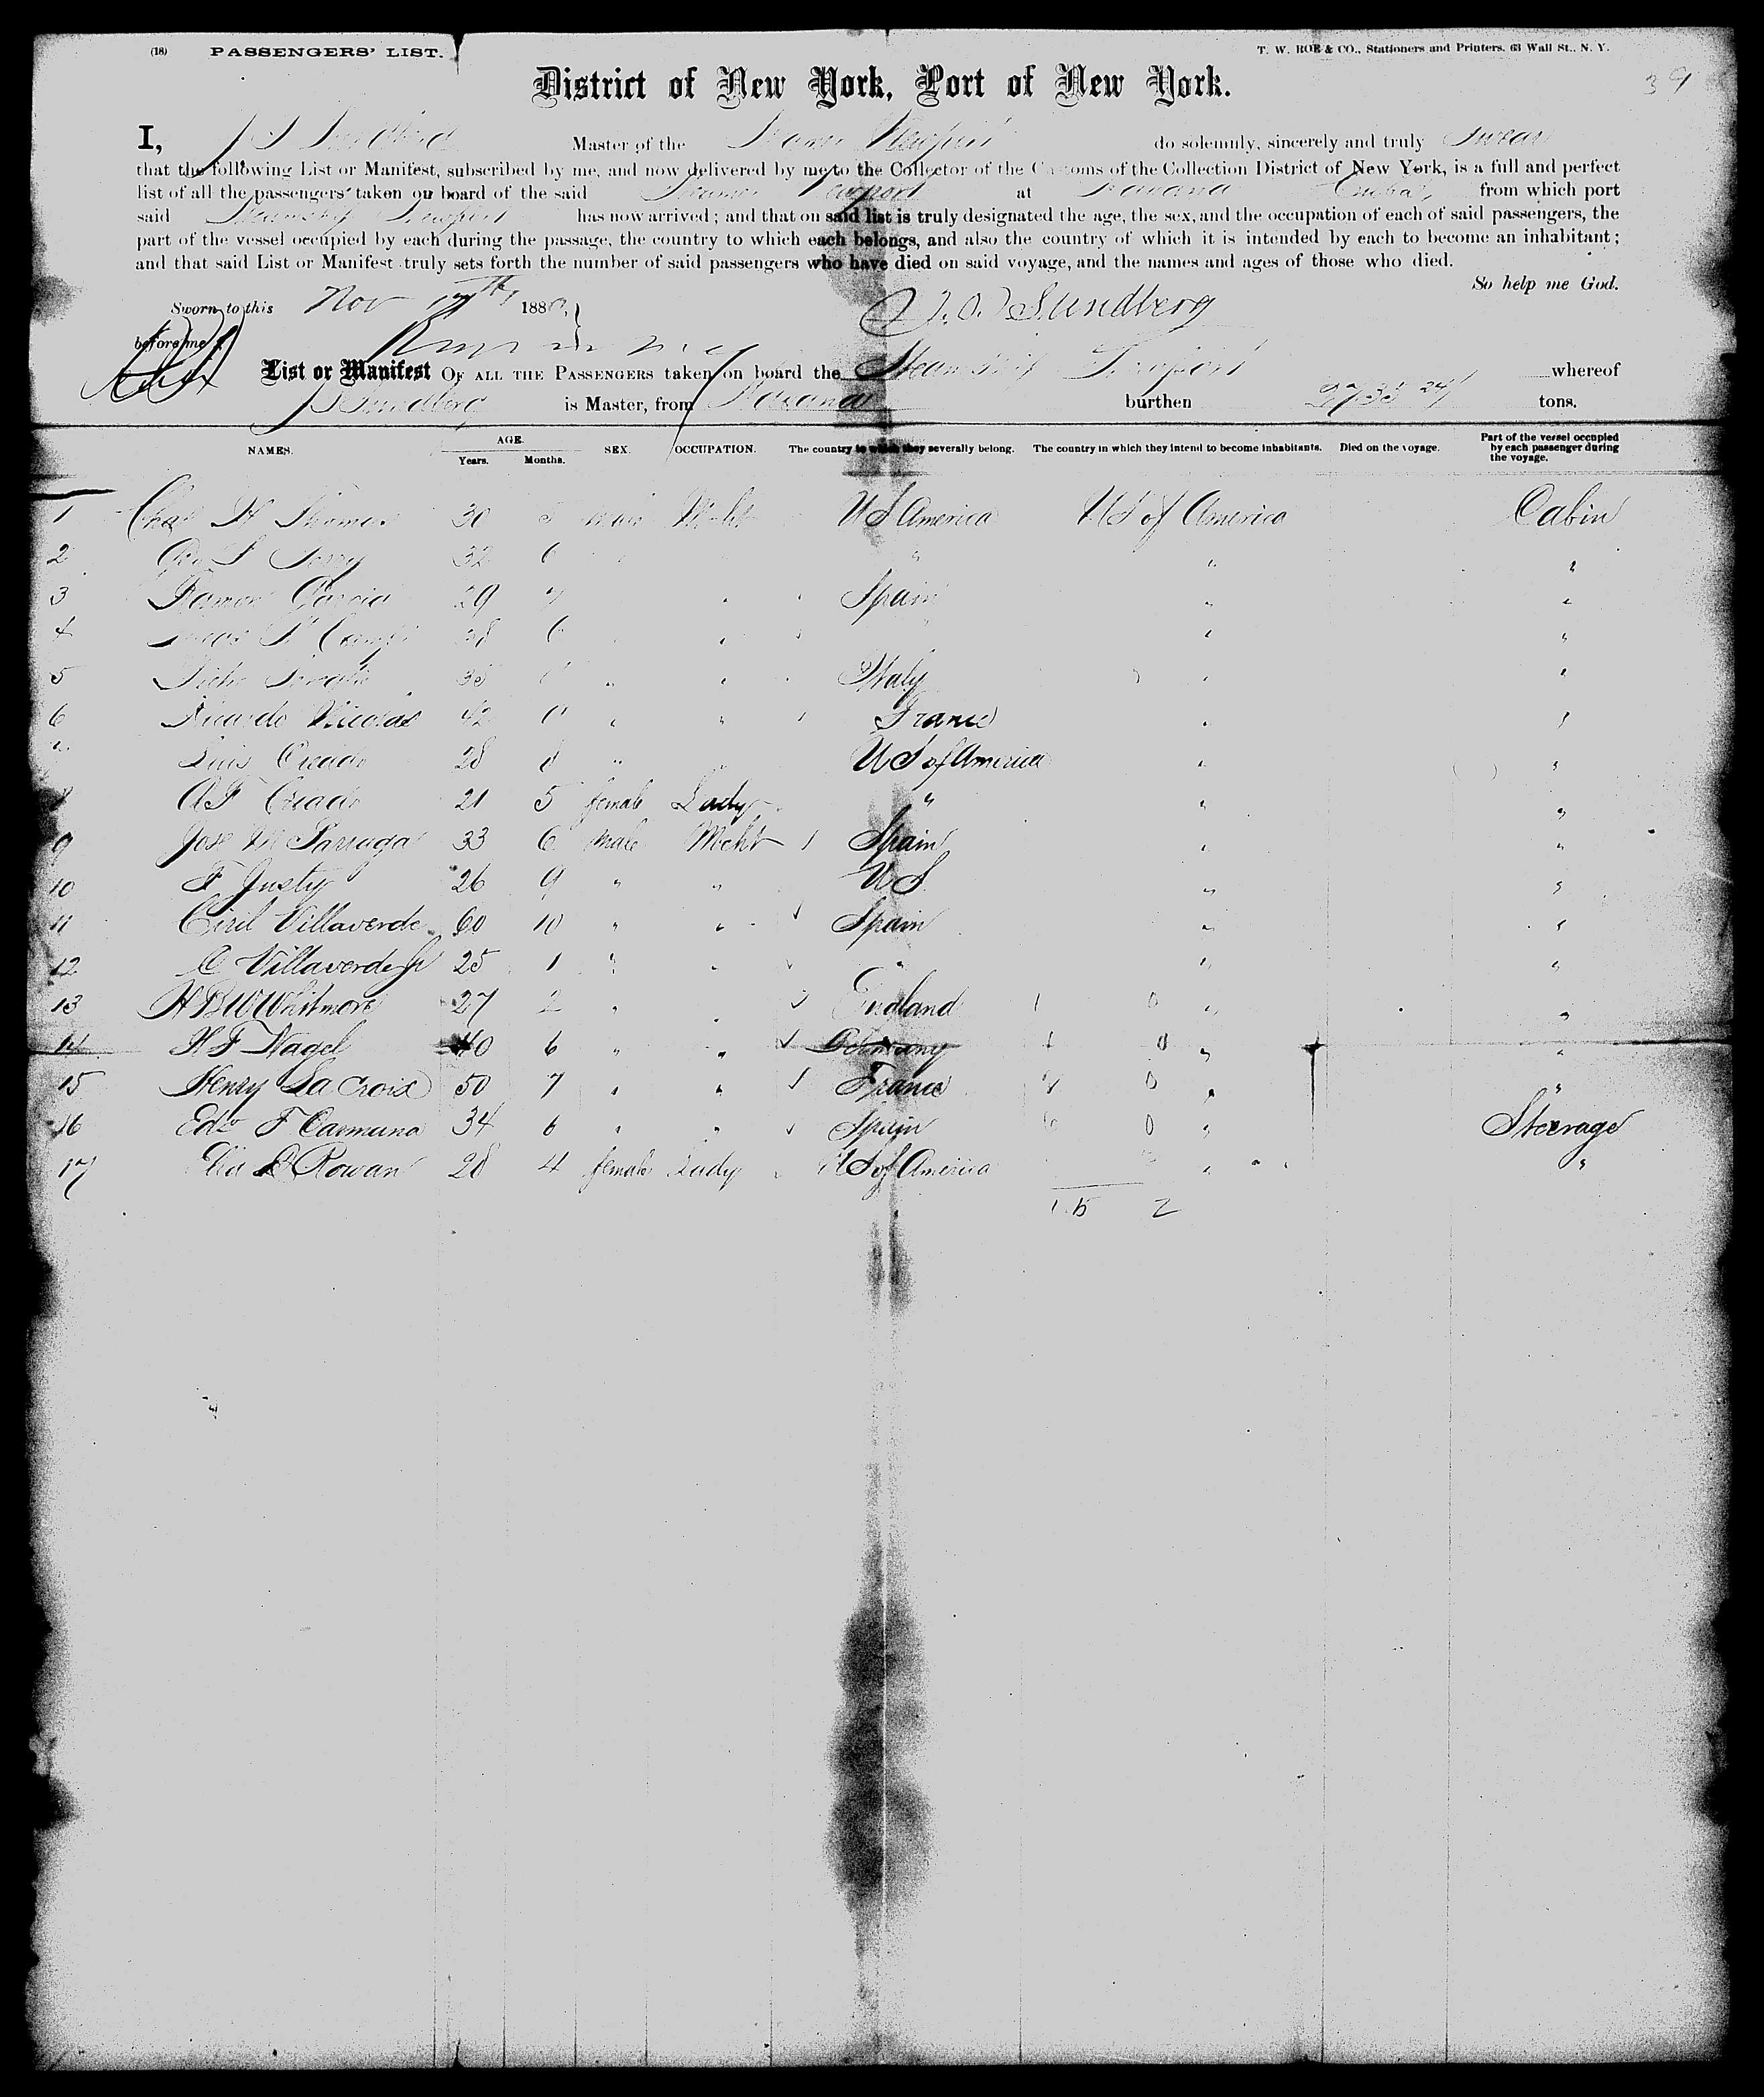 (18) PASSENGERS' LIST. T. W. ROE & CO., Stationers and Printers, 63 Wall St., N. Y.
39
District of New York, Port of New York.
I, Master of the do solemnly, sincerely and truly swear
that the following List or Manifest, subscribed by me, and now delivered by me to the Collector of the Customs of the Collection District of New York, is a full and perfect
list of all the passengers taken on board of the said Steamer Newport at Havana Cuba, from which port
said Steamship Newport has now arrived; and that on said list is truly designated the age, the sex, and the occupation of each of said passengers, the
part of the vessel occupied by each during the passage, the country to which each belongs, and also the country of which it is intended by each to become an inhabitant;
and that said List or Manifest truly sets forth the number of said passengers who have died on said voyage, and the names and ages of those who died.
So help me God.
Sworn to this Nov 17th 188 Sundberg
before me
List or Manifest OF ALL THE PASSENGERS taken on board the Steamship Newport whereof
Sundberg is Master, from Havana burthen tons.
NAMES. AGE. Years. Months. SEX. OCCUPATION. The country to which they severally belong. The country in which they intend to become inhabitants. Died on the voyage. Part of the vessel occupied by each passenger during the voyage.
1 Chas H Thomas 30 5 male Mcht U S America U S of America Cabin
2 Geo 32 6 " "
3 Ramon Garcia 29 7 Spain " "
4 38 6 " "
5 35 Italy " "
6 Ricardo 42 France " "
Luis Criado 28 8 " U S of America " "
A F Criado 21 5 female Lady " " "
9 Jose M Parraga 33 6 male Mcht Spain " "
10 F Justy 26 9 " " U S " "
11 Ciril Villaverde 60 10 " " Spain " "
12 C Villaverde Jr 25 1 " " " " "
13 H B W Whitmore 27 2 " " England " "
14 H F Nagel 40 6 " " Germany " "
15 Henry La Croix 50 7 " " France 0 " "
16 Edo F Carmuna 34 6 " " Spain 0 " Steerage
17 Eliz D Rowan 28 4 female Lady U S of America " "
15 2